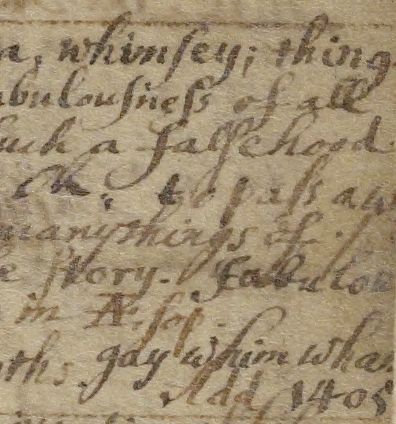 a, whimſey; thing
abulouſneſs of all
ſuch a falſehood
ck, to paſs aw
manythings of.
e ſtory. Fabulou
in Æſop.
ths gay whim wham
Add 1405